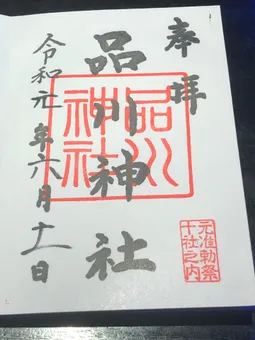 奉拝
元准勅祭
十社之内
品川神社
品川
神社
令和元年六月十一日